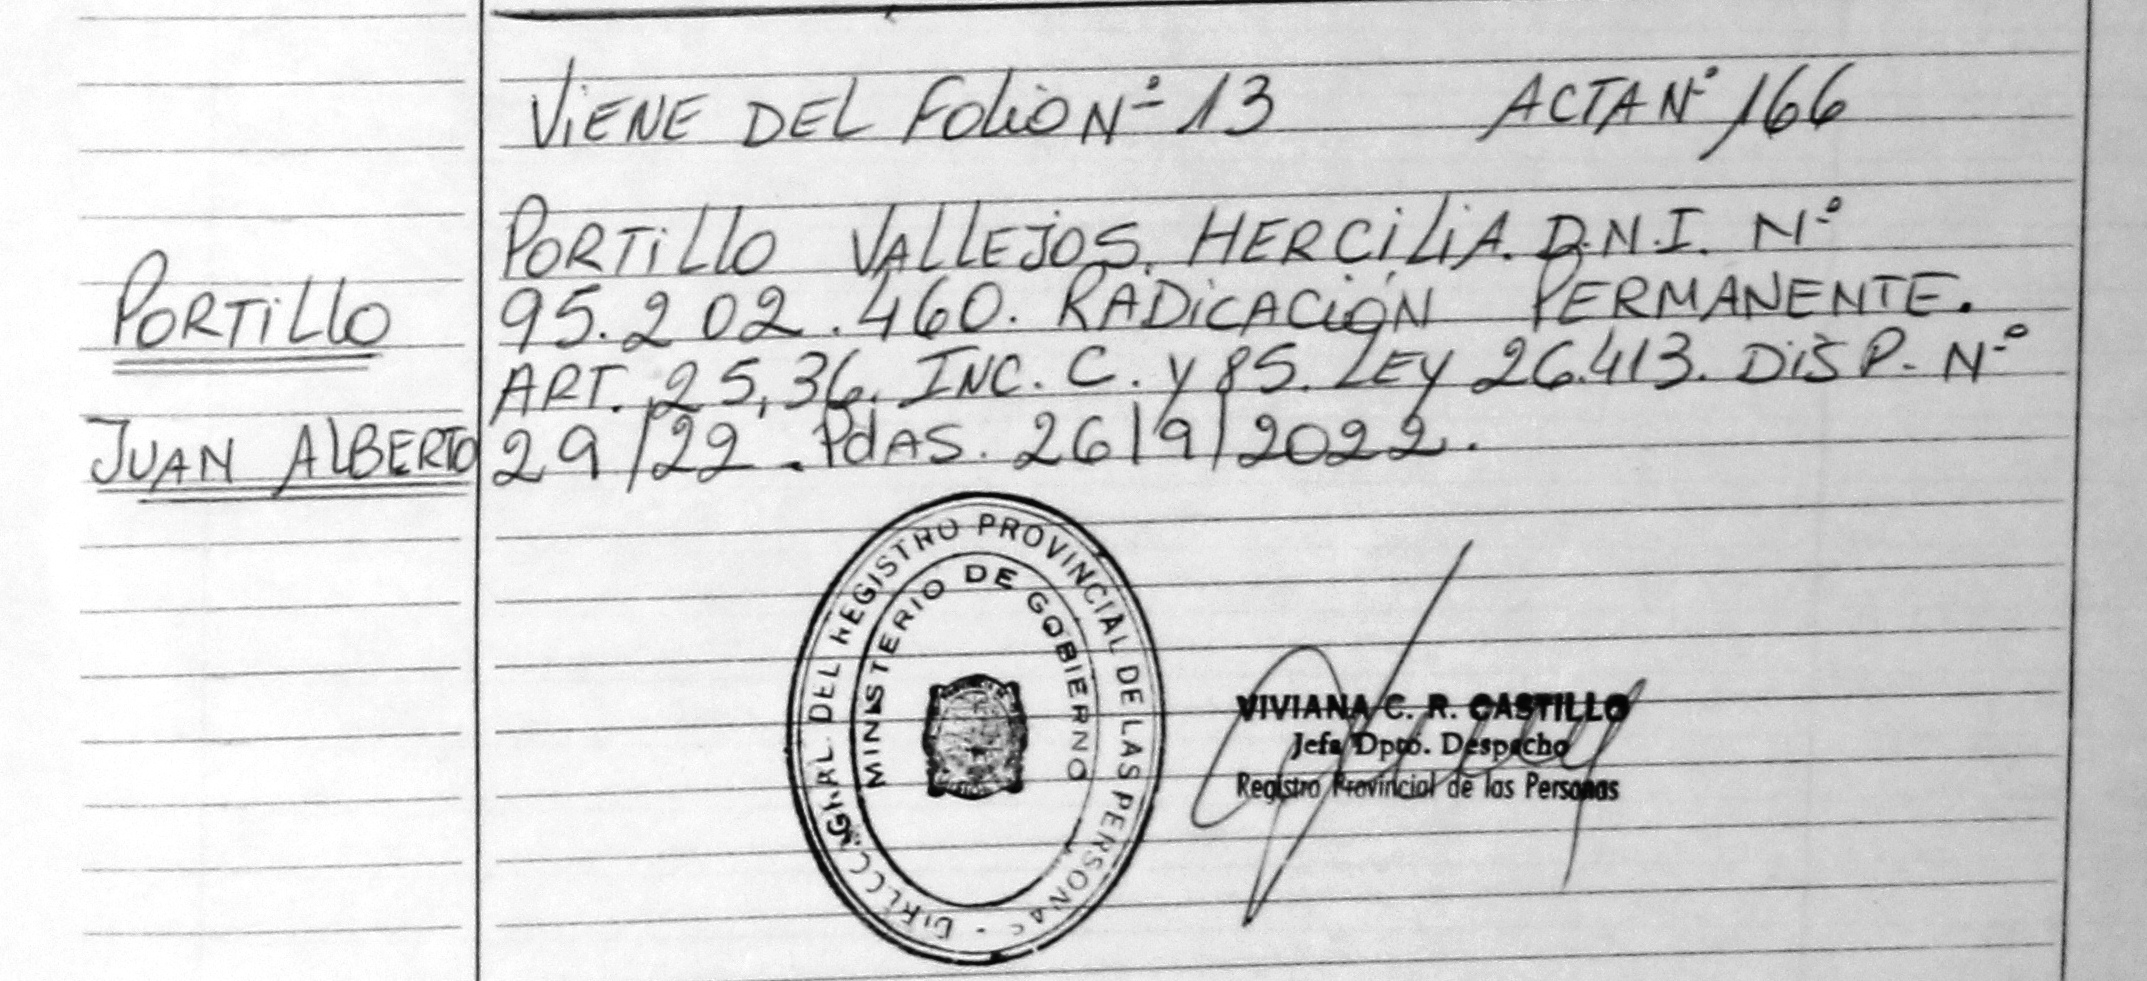 ViENE DEL Folio Nº 13 ACTA Nº 166
PORTillO VALLEJOS. HERCiliA. D.N.I. Nº
PORTillO
95.202.460. RADiCACiÓN PERMANENTE.
ART. 25, 36. INC. C. y 85. LEY 26.413. DiSP. Nº
JUAN ALBERTO
29/22. PdAS. 26/9/2022.
GRAL. DEL REGISTRO PROVINCIAL DE LAS PERSONAS
MINISTERIO DE GOBIERNO
VIVIANA C. R. CASTILLO
Jefa Dpto. Despacho
Registro Provincial de las Personas